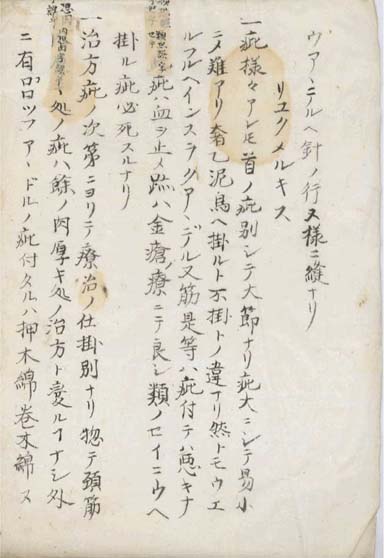 ウアヽテルヘ針ノ行ヌ様ニ縫ナリ
リユクメルキス
一疵様々アレモ首ノ疵別シテ大節ナリ疵大ニシテ易小
ニメ難アリ
掛ルト不掛トノ違ナリ然トモウエ
ルフルヘインスラグアーデル又筋是等ハ疵付テハ悪キナ
疵ハ血ヲ止メ跡ハ金瘡療ニテ良シ類ノセイニウヘ
掛ル疵必死スルナリ
一治方疵ノ次第ニヨリテ療治ノ仕掛別ナリ惣テ頚筋
処ノ疵ハ餘ノ肉厚キ処ノ治方ト変ルヿナシ外
ニ有ロロツフアードルノ疵付タルハ押木綿巻木綿ス